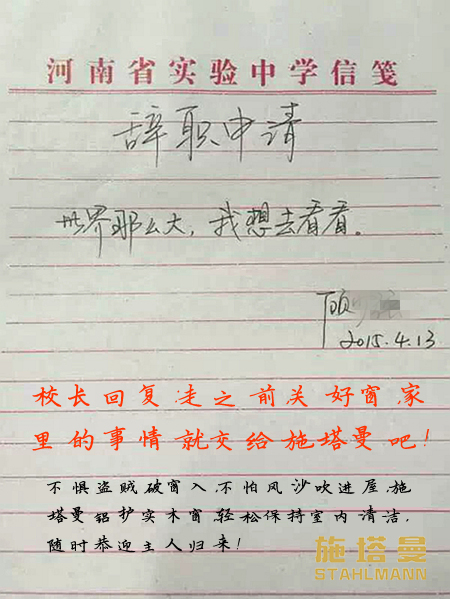 河南省实验中学信笺
辞职申请
世界那么大，我想去看看。
顾
2015.4.13
校长回复:走之前关好窗,家
里的事情就交给施塔曼吧!
不惧盗贼破窗入,不怕风沙吹进屋,施
塔曼铝护实木窗,轻松保持室内清洁,
随时恭迎主人归来!
施塔曼
STAHLMANN